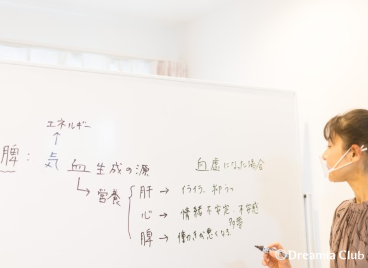 エネルギー
↑
脾: 気 血 生成の源
血虚になった場合
↳ 営養
肝 → イライラ、抑うつ
心 → 情緒不安定 不安感
多夢
脾 → 働きが悪くなる
©Dream a Club